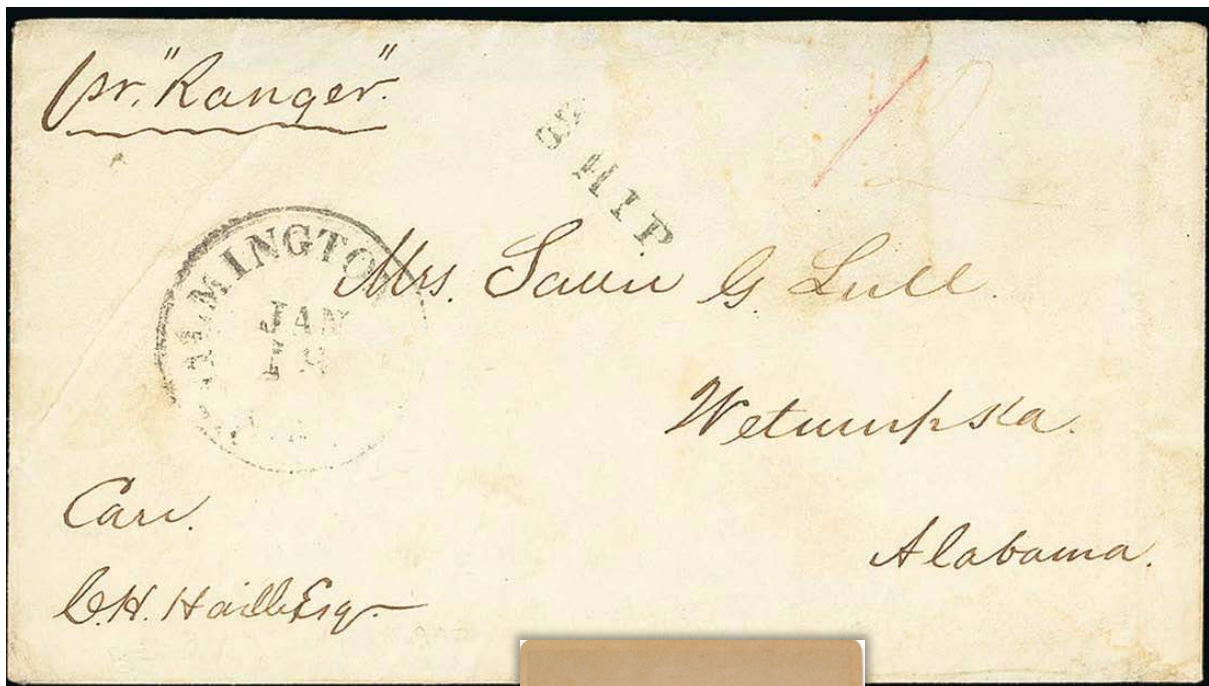 pr. "Ranger"
SHIP
WILMINGTON
JAN
Mrs. Savin G Lull.
Wetumpka.
Alabama.
Care.
C.H. Haill Esq.